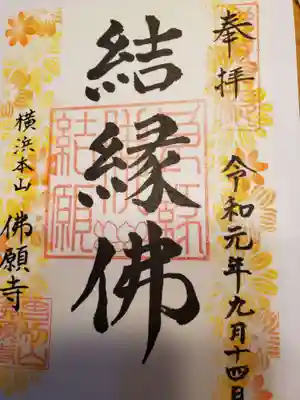 奉拝
令和元年九月十四日
結縁佛
横浜本山 佛願寺